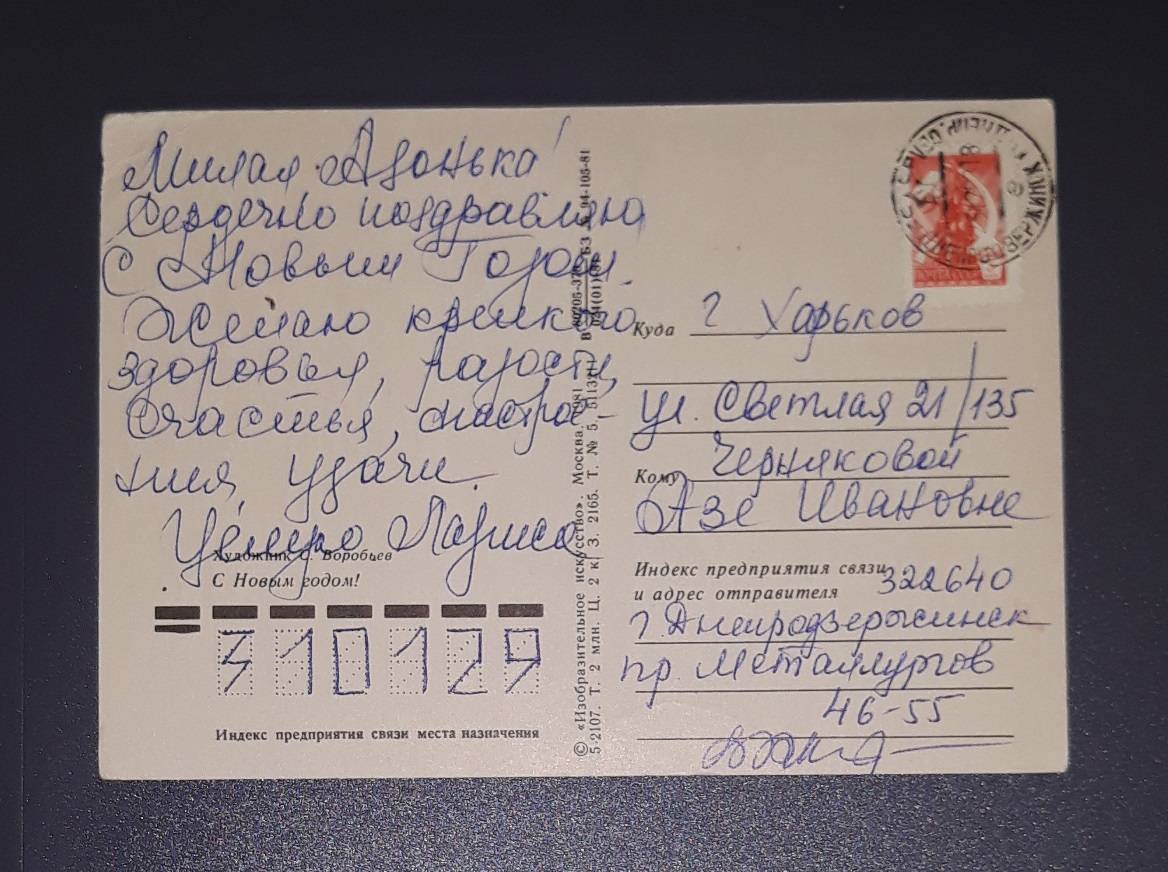 Милая Азонька!
Сердечно поздравляю
с Новым Годом.
Желаю крепкого
здоровья, радости,
счастья, настро-
ния, удачи.
Целую Лариса
Художник С. Воробьев
С Новым годом!
310129
Индекс предприятия связи места назначения
© «Изобразительное искусство». Москва. 1981
5-2107. Т. 2 млн. Ц. 2 к. З. 2165. Т. № 5.
63 А 94-105-81
Куда г Харьков
ул. Светлая 21/135
Кому Черняковой
Азе Ивановне
Индекс предприятия связи
и адрес отправителя 322640
г. Днепродзержинск
пр. Металлургов
46-55